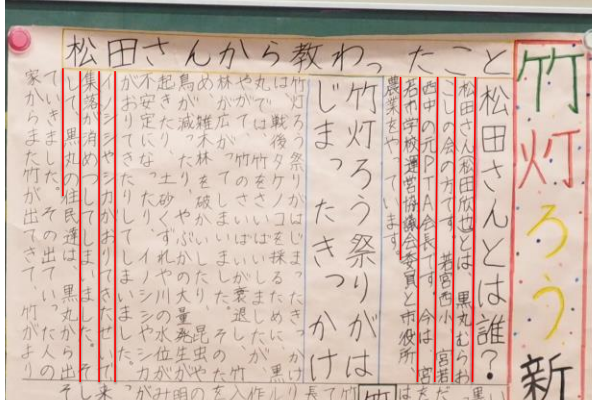 竹灯ろう新
松田さんから教わったこと
松田さんとは誰?
松田さん(松田欣也)とは、黒丸むらお
こしの会の方です。若宮西小、宮若
西中の元PTA会長です。今は、宮
若市学校運営協議会委員と市役所、
農業をやっています。
竹灯ろう祭りがは
じまったきっかけ
竹灯ろう祭りがはじまったきっかけ
は、戦後タケノコを採るために、黒
丸では、竹をさいばいしましたが、
やがて、竹のさいばいが衰退し、竹
林が広がってしまいました。そのた
め、雑木林を破かいしたり、昆虫や
鳥が減ったり、やぶかの大量発生が
起きたり、土砂くずれや川の水位が
不安定になったり、イノシシやシカ
がおりてきたりしてしまいました。
イノシシやシカがおりてきたせいで
集落が消めつしてしまいました。そ
して、黒丸の住民達は、黒丸から出
ていきました。その出ていった人の
家からまた竹が出てきて、竹がより